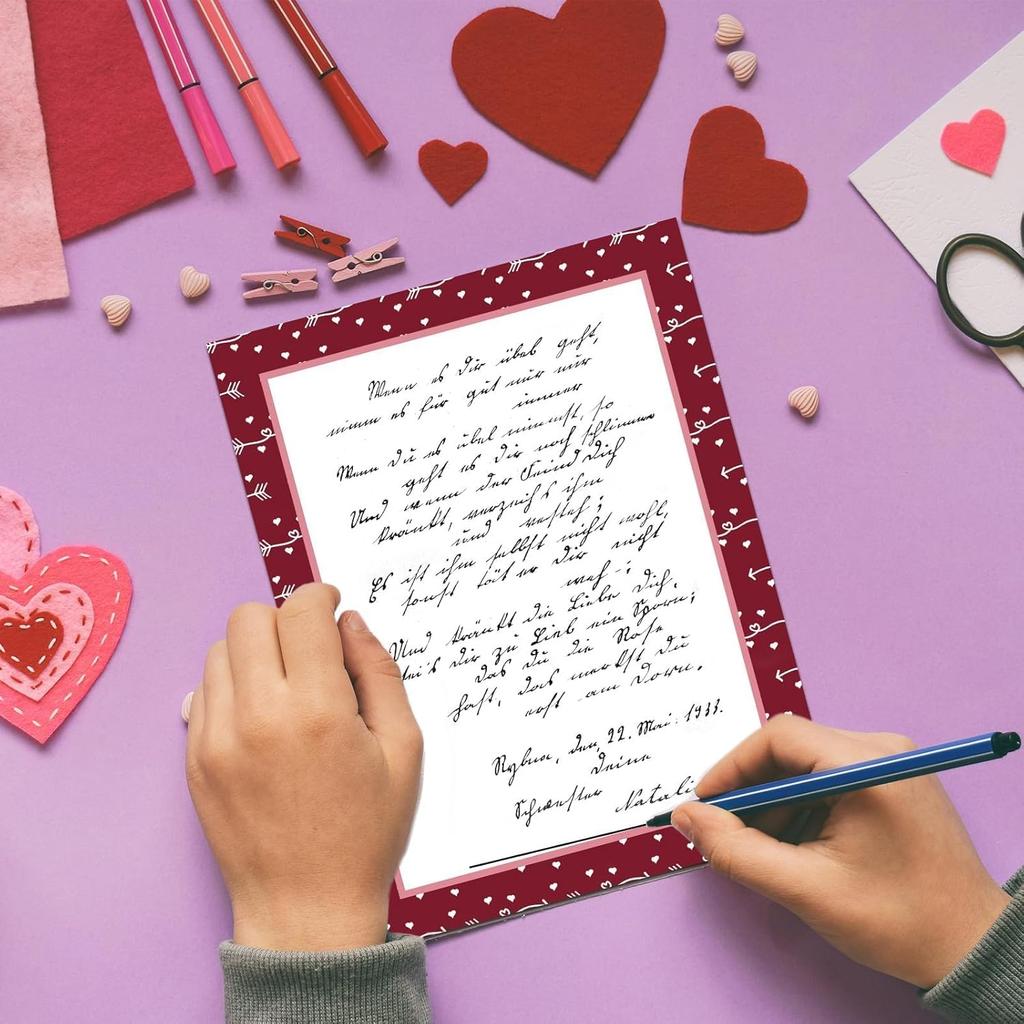 Wenn es dir übel geht,
nimm es für gut nur nur
immer
Wenn du es übel nimmst, so
geht es dir noch schlimmer
Und wenn der Feind dich
kränkt, verzeih's ihm
und versteh;
Es ist ihm selbst nicht wohl,
sonst tät er dir nicht
weh;
Und kränkt die Liebe dich,
sei's dir zu Lieb ein Sporn;
das du die Rose
hast, das merkst du
erst am Dorn.
Rybna, den, 22. Mai. 1933.
Deine
Schwester Natali